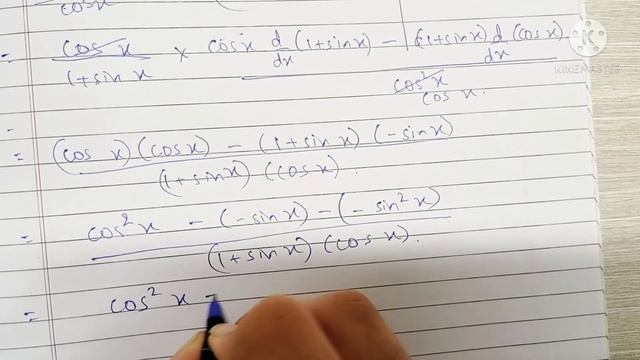 cos x
= cos x / 1+sin x × cos x d/dx (1+sin x) − (1+sin x) d/dx (cos x) / cos² x cos x.
KINEMASTER
= (cos x) (cos x) − (1+sin x) (−sin x) / (1+sin x) (cos x).
= cos² x − (−sin x) − (−sin² x) / (1+sin x) (cos x).
= cos² x −